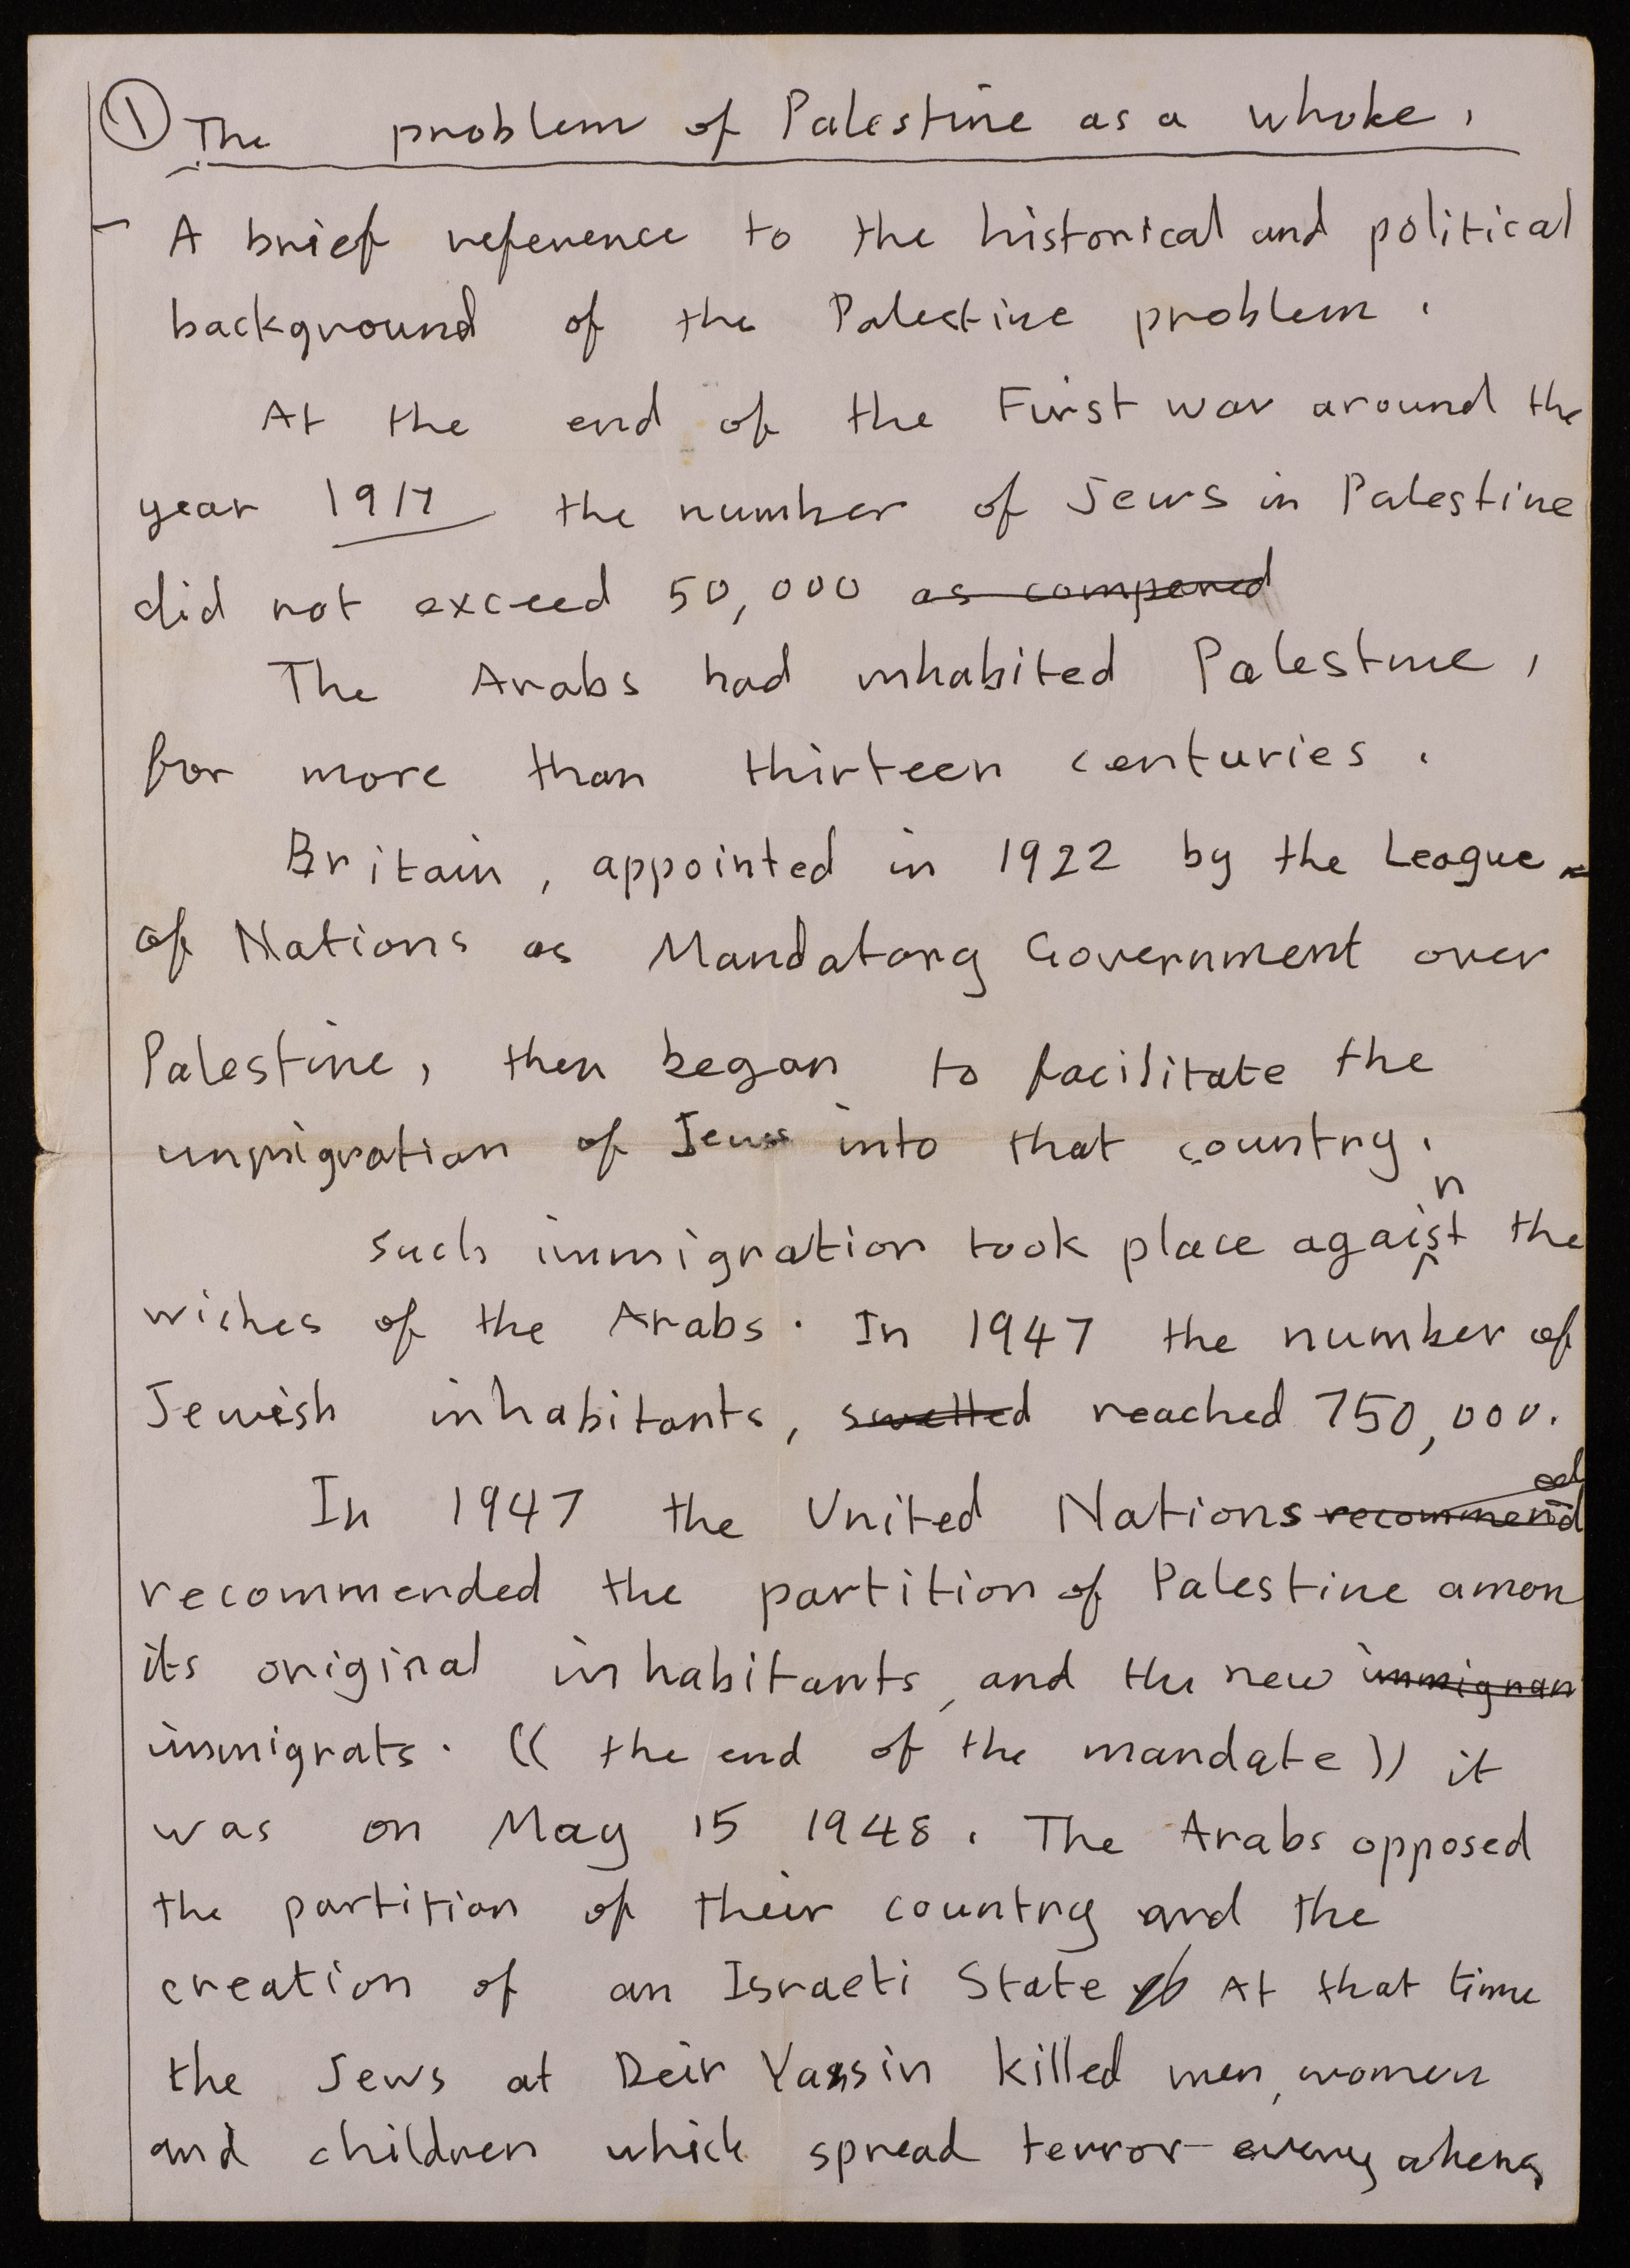 ① The problem of Palestine as a whoke.
- A brief reference to the historical and political
background of the Palestine problem.
At the end of the First war around the
year 1917 the number of Jews in Palestine
did not exceed 50,000 as compared
The Arabs had inhabited Palestine,
for more than thirteen centuries.
Britain, appointed in 1922 by the League
of Nations as Mandatory Government over
Palestine, then began to facilitate the
immigration of Jews into that country.
Such immigration took place against the
wishes of the Arabs. In 1947 the number of
Jewish inhabitants, swelled reached 750,000.
In 1947 the United Nations recommended
recommended the partition of Palestine amon
its original inhabitants, and the new immigran
immigrats. (( the end of the mandate )) it
was on May 15 1948. The Arabs opposed
the partition of their country and the
creation of an Israeli State At that time
the Jews at Deir Yassin killed men, women
and children which spread terror every where